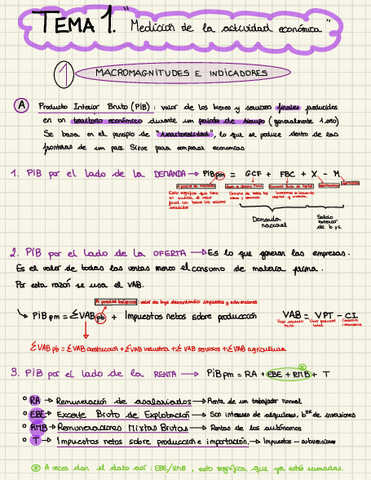 TEMA 1. "Medición de la actividad económica"
1 MACROMAGNITUDES E INDICADORES
A Producto Interior Bruto (PIB): valor de los bienes y servicios finales producidos
en un territorio económico durante un periodo de tiempo (generalmente 1 año)
Se basa en el principio de "territorialidad", lo que se produce dentro de las
fronteras de un país. Sirve para comparar economías
1. PIB por el lado de la DEMANDA → PIBpm = GCF + FBC + X - M
Demanda nacional
Saldo exterior de b y s.
2. PIB por el lado de la OFERTA → Es lo que generan las empresas.
Es el valor de todas las ventas menos el consumo de materia prima.
Por esta razón se usa el VAB.
A precios básicos valor de bys descontando impuestos y subvenciones
↳ PIBpm = ΣVABpb + Impuestos netos sobre producción VAB = VPT - CI
ΣVABpb = ΣVAB construcción + ΣVAB industria + ΣVAB servicios + ΣVAB agricultura
3. PIB por el lado de la RENTA → PIBpm = RA + EBE + RMB + T
RA → Remuneración de asalariados → Renta de un trabajador normal
EBE → Excedente Bruto de Explotación → Son intereses de alquileres, bos de inversiones
RMB → Remuneraciones Mixtas Brutas → Rentas de los autónomos
T → Impuestos netos sobre producción e importación → Impuestos - subvenciones
A veces dan el dato así: EBE/RMB, esto significa que ya están sumadas.